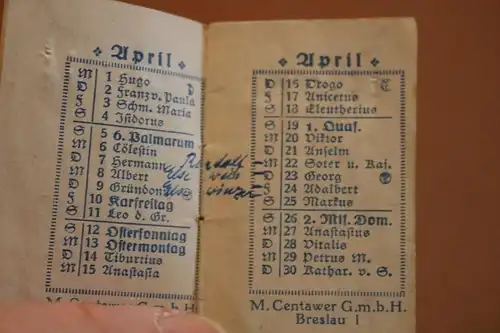 April
M 1 Hugo
D 2 Franz v. Paula
F 3 Schm. Maria
S 4 Isidorus
S 5 6. Palmarum
M 6 Cölestin
D 7 Hermann
M 8 Albert
D 9 Gründon
F 10 Karfreitag
S 11 Leo d. Gr.
S 12 Ostersonntag
M 13 Ostermontag
D 14 Tiburtius
M 15 Anastasia
M. Centawer G.m.b.H.
Breslau
April
D 16 Drogo
F 17 Anicetus
S 18 Eleutherius
S 19 1. Quas.
M 20 Viktor
D 21 Anselm
M 22 Soter u. Kaj.
D 23 Georg
F 24 Adalbert
S 25 Markus
S 26 2. Mis. Dom.
M 27 Anastasius
D 28 Vitalis
M 29 Petrus M.
D 30 Kathar. v. S.
M. Centawer G.m.b.H.
Breslau I